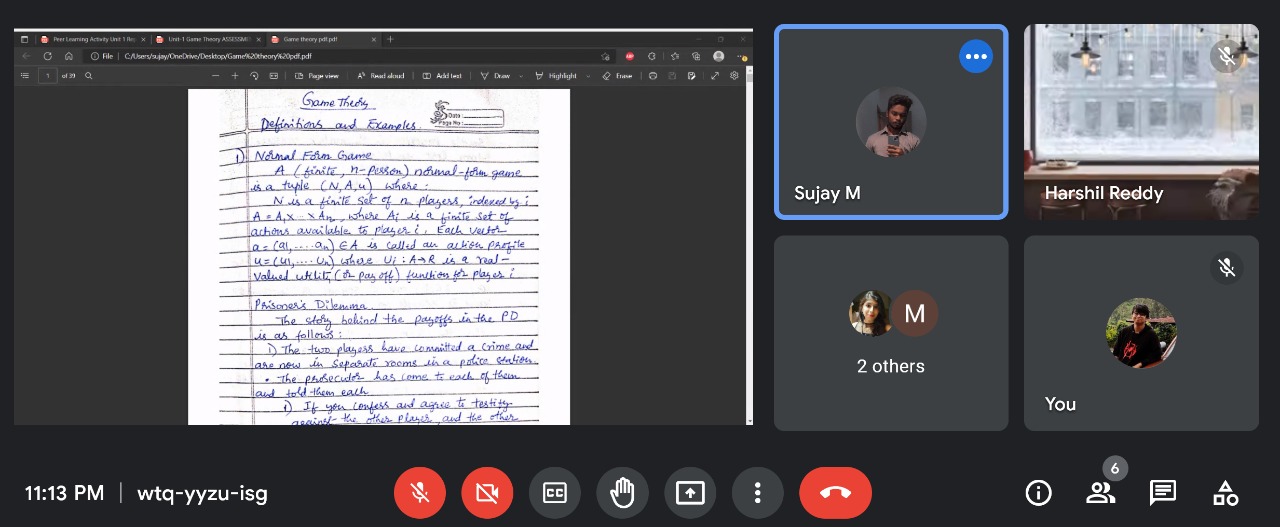 Peer Learning Activity Unit 1 Rep
Unit-1 Game Theory ASSESSME
Game theory pdf.pdf
File
C:/Users/sujay/OneDrive/Desktop/Game%20theory%20pdf.pdf
1 of 39
Page view
Read aloud
Add text
Draw
Highlight
Erase
Game Theory
Date :
Page No :
Definitions and Examples
1) Normal Form Game
A (finite, n-person) normal-form game
is a tuple (N, A, u) where :
N is a finite set of n players, indexed by i
A = A1 x ... x An, where Ai is a finite set of
actions available to player i. Each vector
a = (a1, .... an) ∈ A is called an action profile
u = (u1, .... un) where Ui : A→R is a real-
valued utility (or pay off) function for player i
Prisoner's Dilemma
The story behind the payoffs in the PD
is as follows :
i) The two players have committed a crime and
are now in separate rooms in a police station
• The prosecutor has come to each of them
and told them each
i) If you confess and agree to testify
against the other player, and the other
Sujay M
Harshil Reddy
M
2 others
You
11:13 PM | wtq-yyzu-isg
CC
6